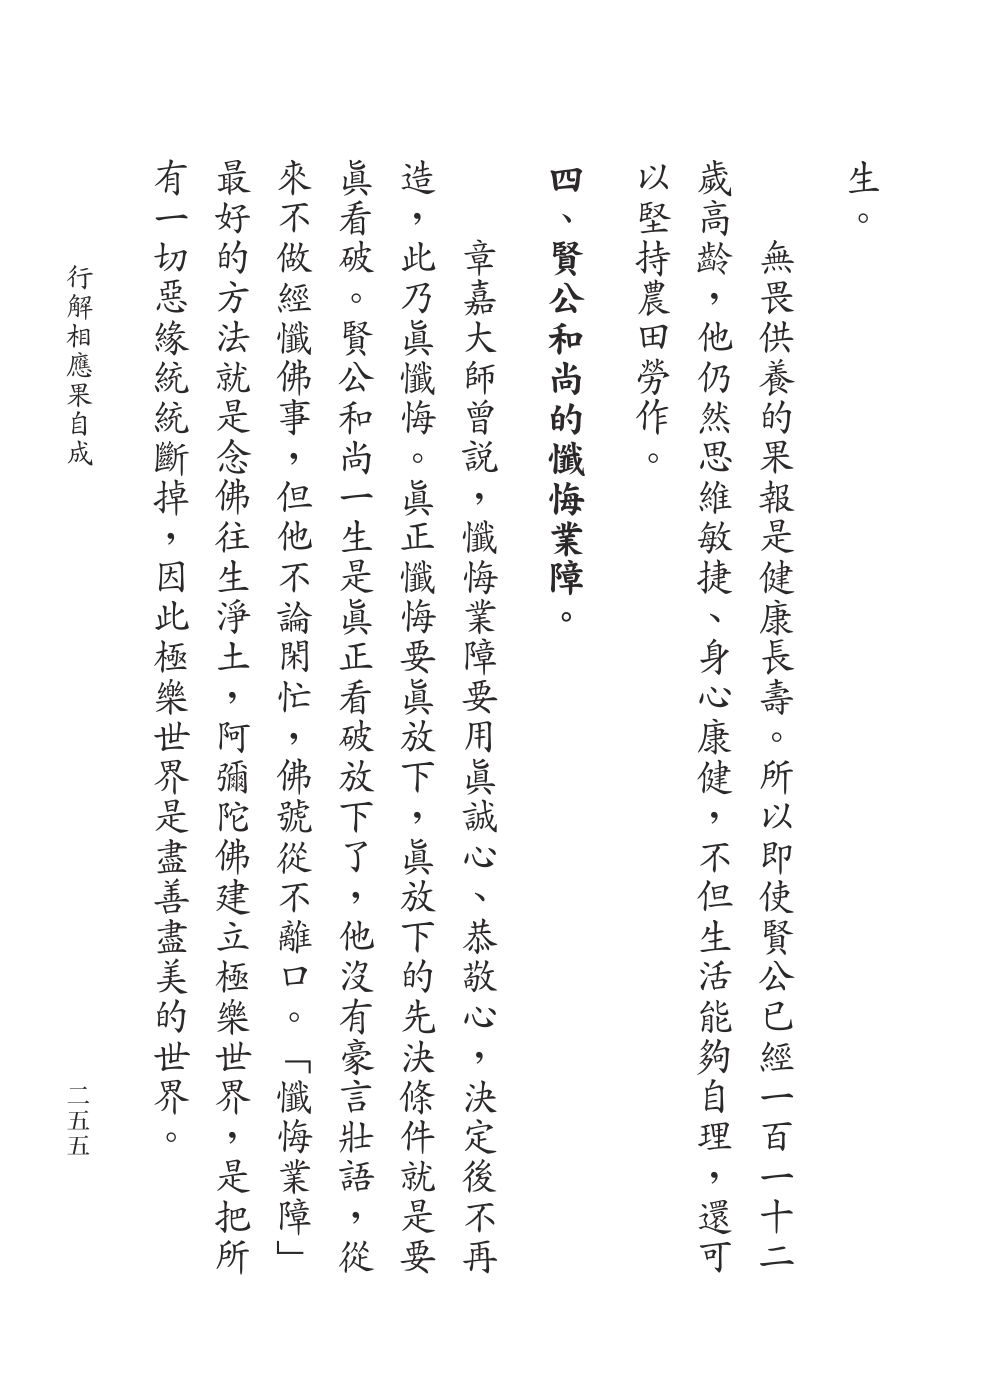 生。
無畏供養的果報是健康長壽。所以即使賢公已經一百一十二
歲高齡，他仍然思維敏捷、身心康健，不但生活能夠自理，還可
以堅持農田勞作。
四、賢公和尚的懺悔業障。
章嘉大師曾説，懺悔業障要用眞誠心、恭敬心，決定後不再
造，此乃眞懺悔。眞正懺悔要眞放下，眞放下的先決條件就是要
眞看破。賢公和尚一生是眞正看破放下了，他沒有豪言壯語，從
來不做經懺佛事，但他不論閑忙，佛號從不離口。「懺悔業障」
最好的方法就是念佛往生淨土，阿彌陀佛建立極樂世界，是把所
有一切惡緣統統斷掉，因此極樂世界是盡善盡美的世界。
行解相應果自成
二五五